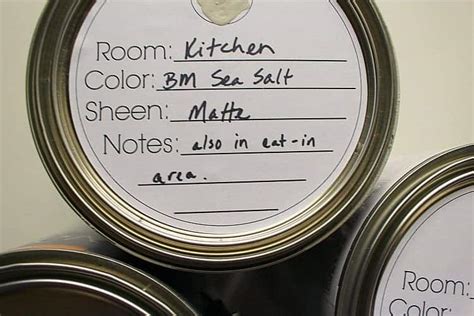 Room: Kitchen
Color: BM Sea Salt
Sheen: Matte
Notes: also in eat-in
area.
Room:
Color: